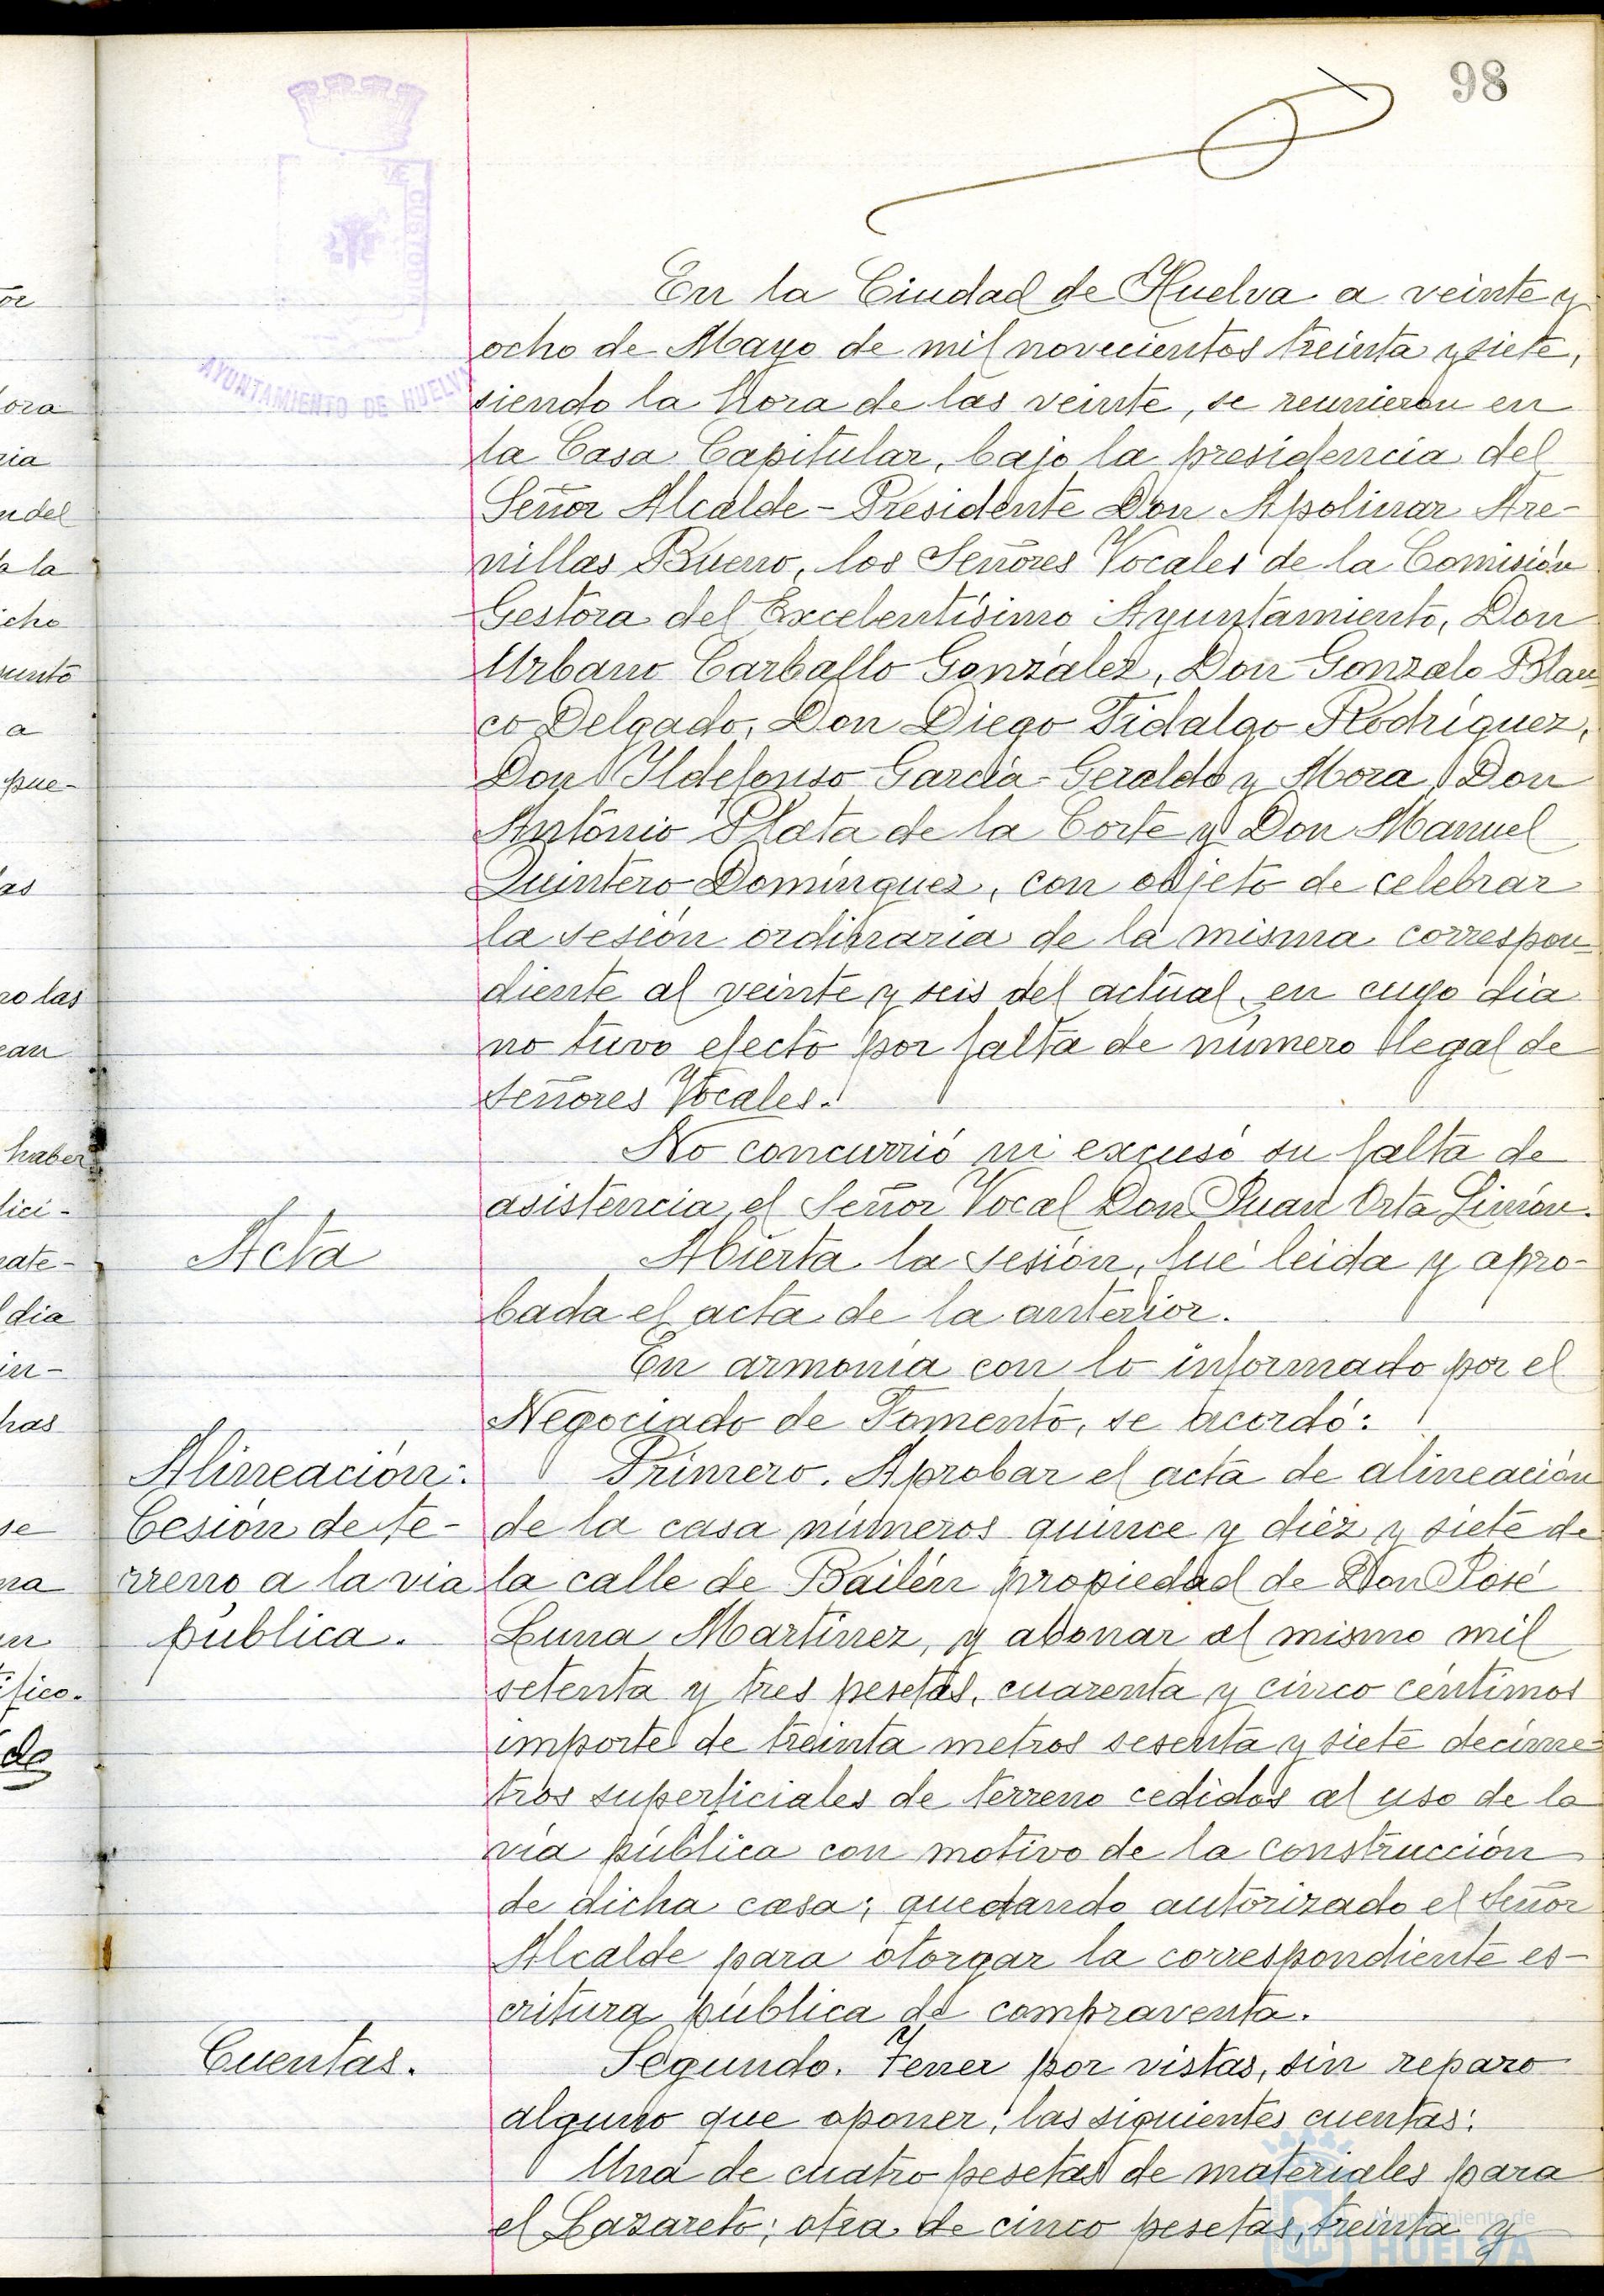 98
En la Ciudad de Huelva a veinte y
ocho de Mayo de mil novecientos treinta y siete,
siendo la hora de las veinte, se reunieron en
la Casa Capitular, bajo la presidencia del
Señor Alcalde-Presidente Don Apolinar Are-
nillas Bueno, los Señores Vocales de la Comisión
Gestora del Excelentísimo Ayuntamiento, Don
Urbano Carballo González, Don Gonzalo Blan-
co Delgado, Don Diego Fidalgo Rodríguez,
Don Ildefonso García-Geraldo y Mora, Don
Antonio Plata de la Corte y Don Manuel
Quintero Domínguez, con objeto de celebrar
la sesión ordinaria de la misma correspon-
diente al veinte y seis del actual, en cuyo día
no tuvo efecto por falta de número legal de
Señores Vocales.
No concurrió ni excusó su falta de
asistencia, el Señor Vocal Don Juan Orta Limón.
Acta
Abierta la sesión, fué leida y apro-
bada el acta de la anterior.
En armonía con lo informado por el
Negociado de Fomento, se acordó:
Alineación:
Cesión de te-
rreno a la via
pública.
Primero. Aprobar el acta de alineación
de la casa números quince y diez y siete de
la calle de Bailén propiedad de Don José
Luna Martínez, y abonar al mismo mil
setenta y tres pesetas, cuarenta y cinco céntimos
importe de treinta metros sesenta y siete decíme-
tros superficiales de terreno cedidos al uso de la
vía pública con motivo de la construcción
de dicha casa; quedando autorizado el Señor
Alcalde para otorgar la correspondiente es-
critura pública de compraventa.
Cuentas.
Segundo. Tener por vistas, sin reparo
alguno que oponer, las siguientes cuentas:
Una de cuatro pesetas de materiales para
el Lazareto; otra de cinco pesetas, treinta y
AYUNTAMIENTO DE HUELVA
Ayuntamiento de
HUELVA